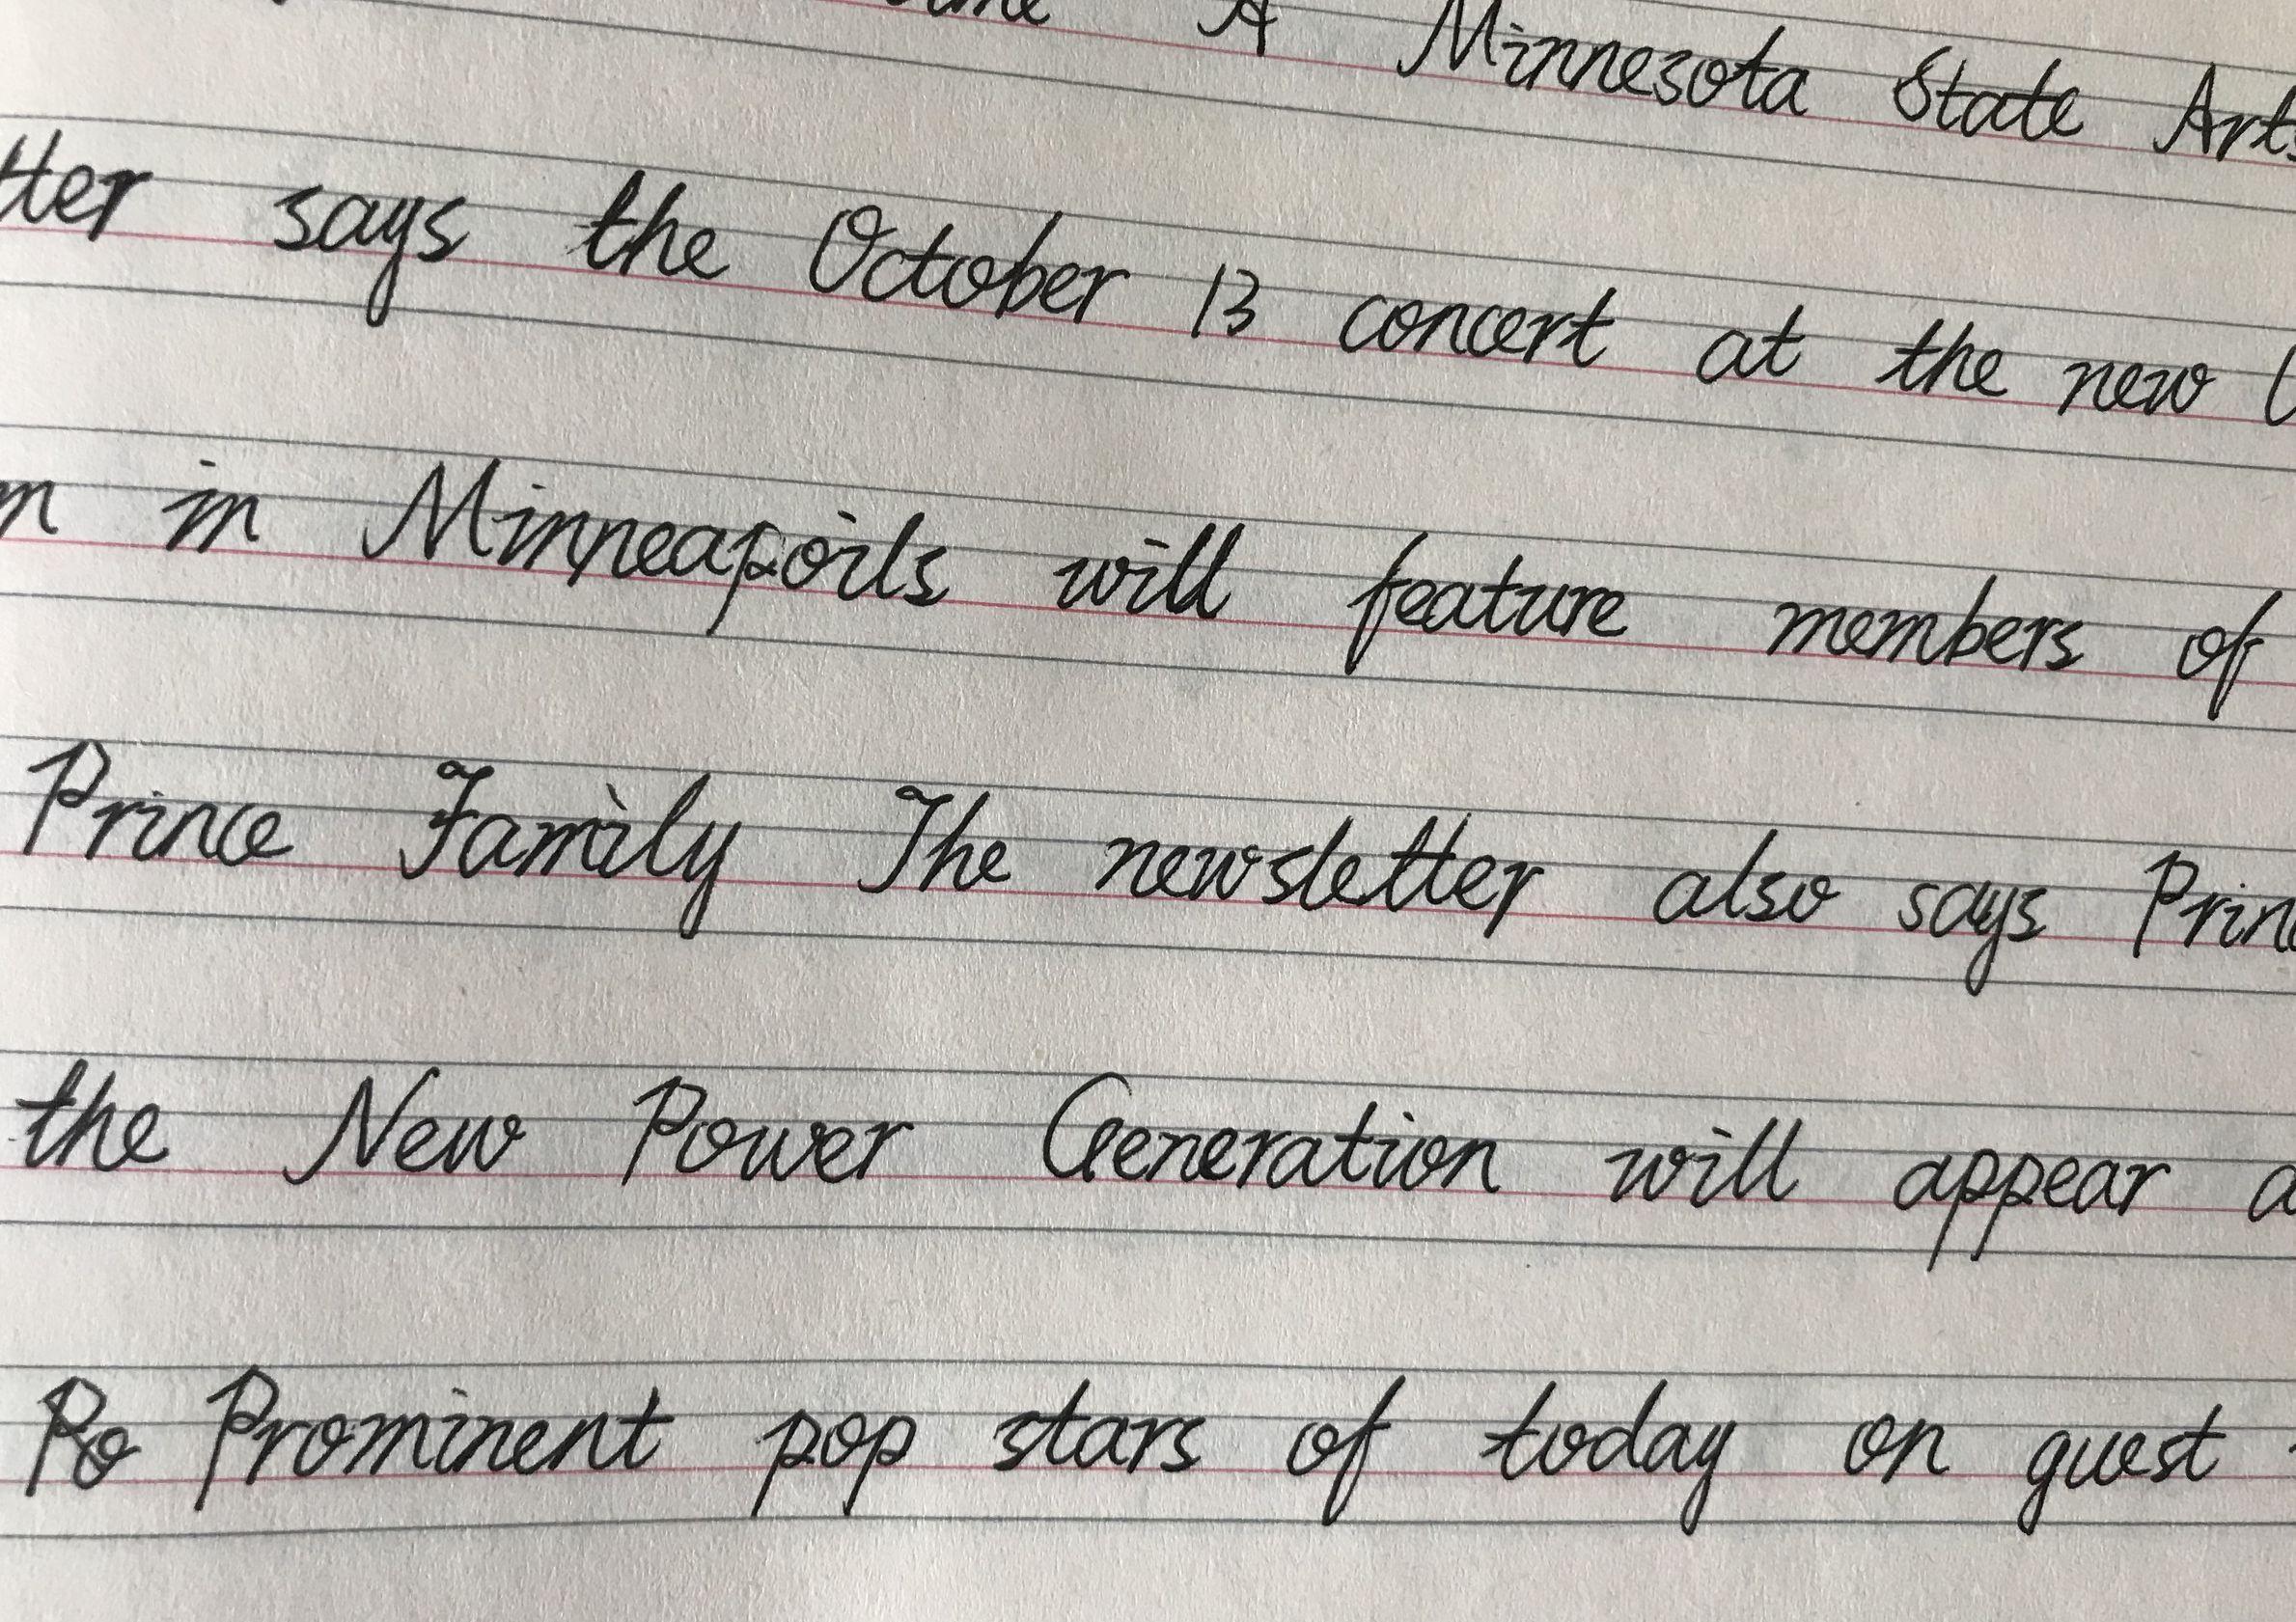 A Minnesota State Arts
tter says the October 13 concert at the new
m in Minneapoils will feature members of
Prince Family The newsletter also says Prin
the New Power Generation will appear a
Po Prominent pop stars of today on guest